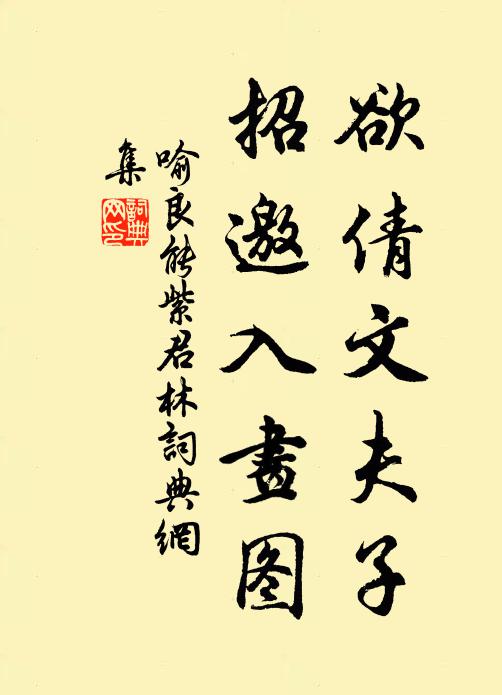 欲倩文夫子
招邀入畫图
喻良能紫君林詞典網
集
詞典
网印